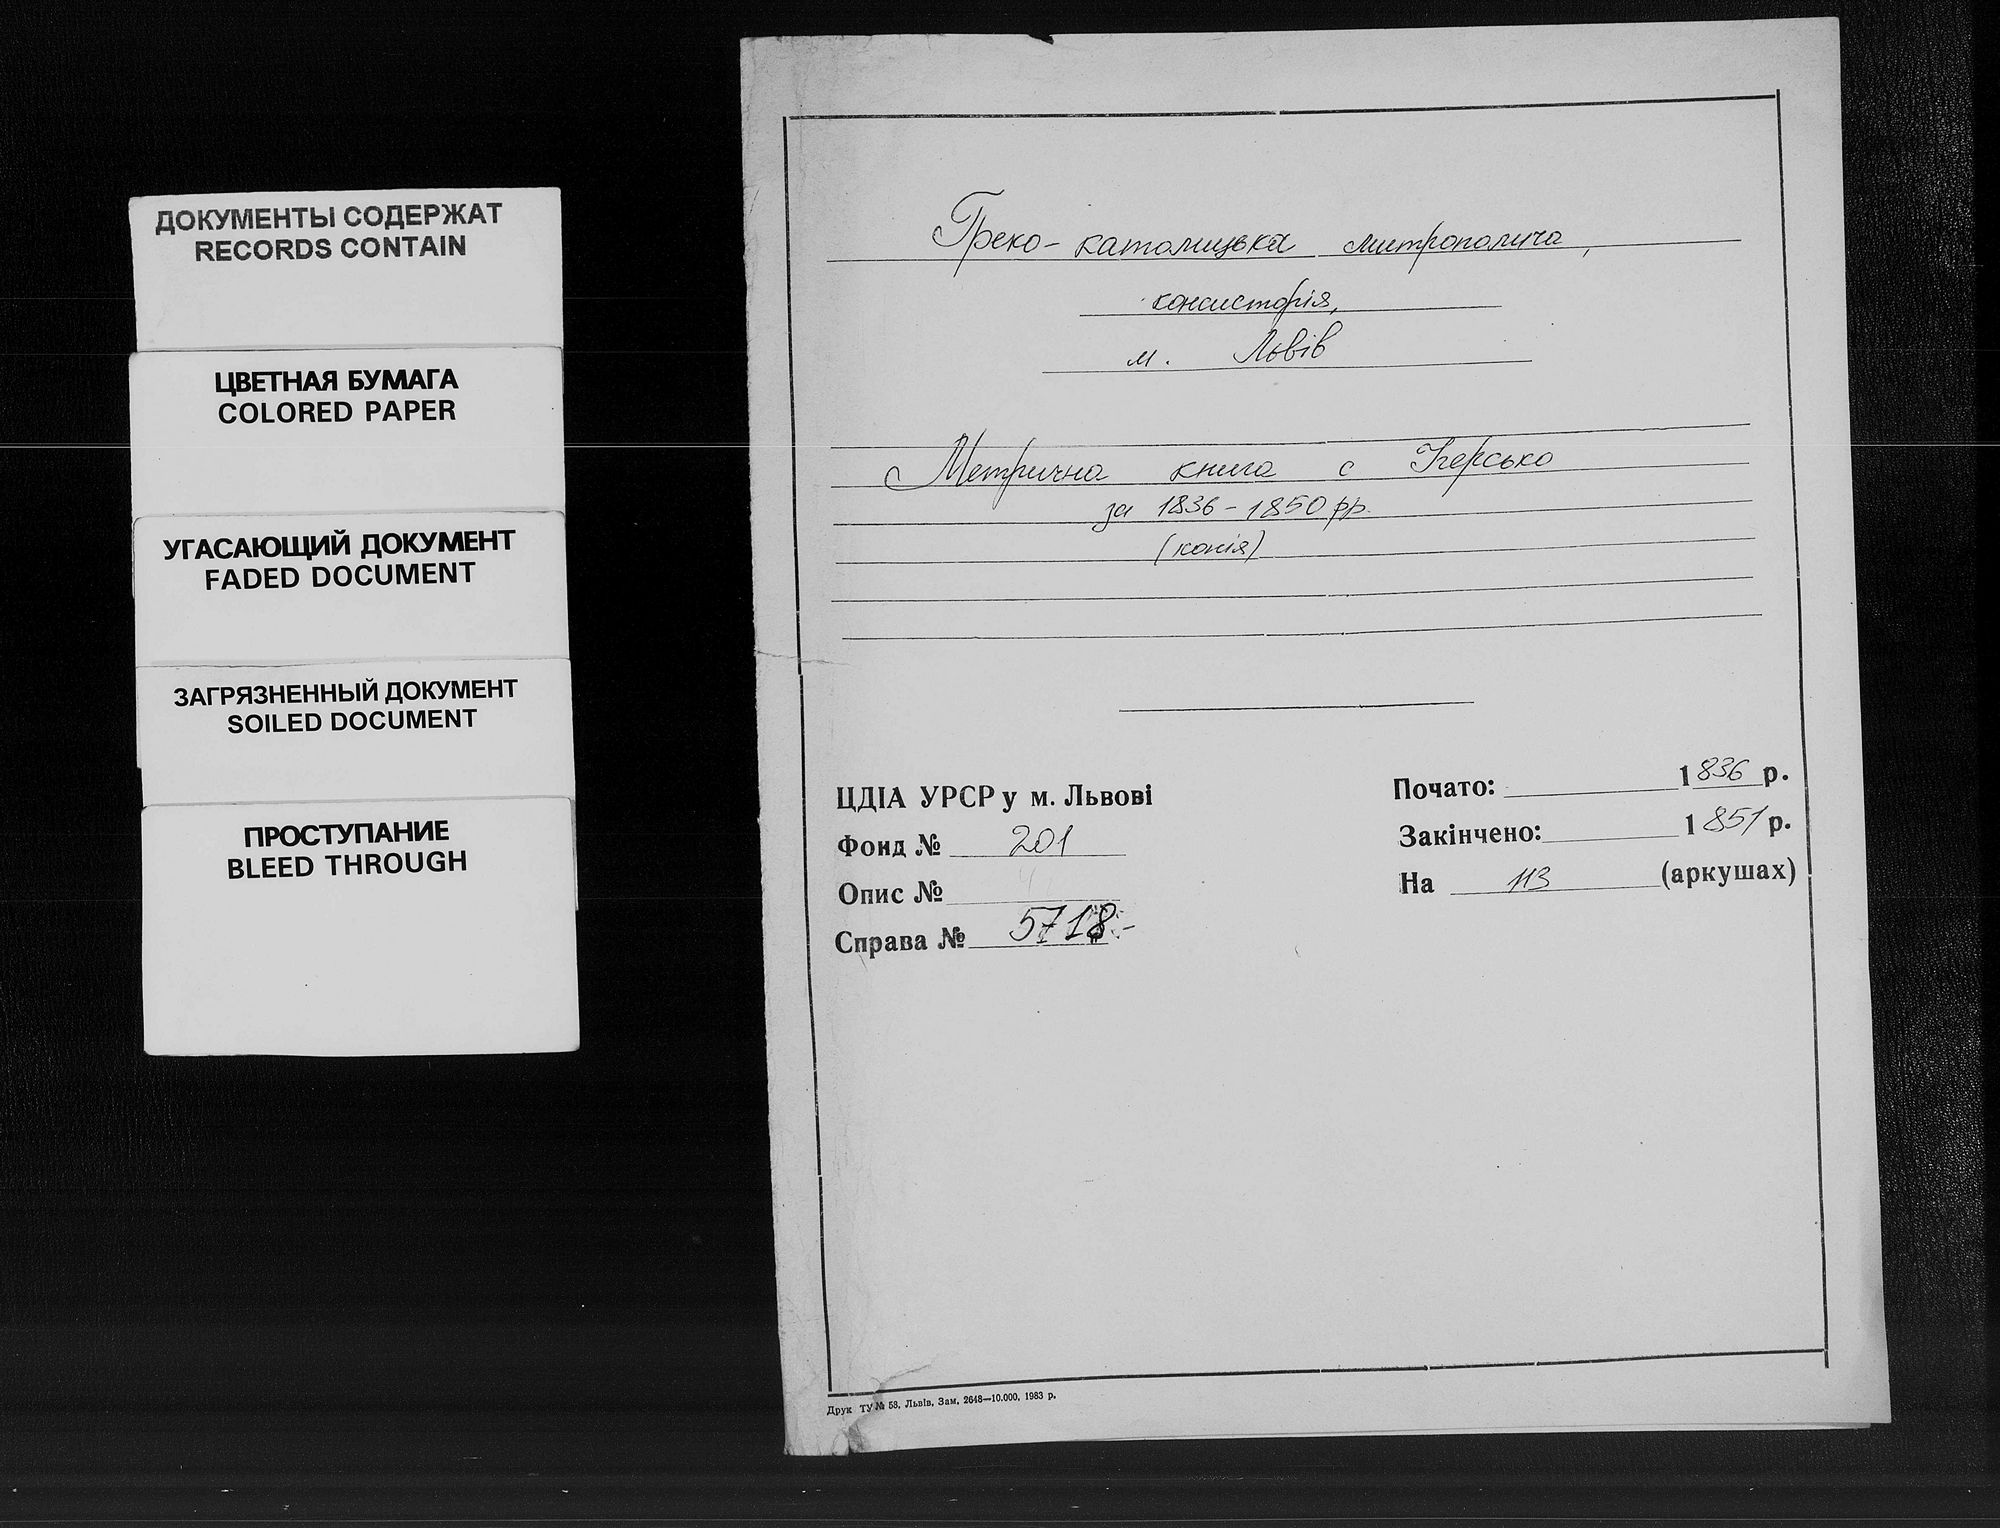 ДОКУМЕНТЫ СОДЕРЖАТ
RECORDS CONTAIN
ЦВЕТНАЯ БУМАГА
COLORED PAPER
УГАСАЮЩИЙ ДОКУМЕНТ
FADED DOCUMENT
ЗАГРЯЗНЕННЫЙ ДОКУМЕНТ
SOILED DOCUMENT
ПРОСТУПАНИЕ
BLEED THROUGH
Греко-католицька митрополича,
консисторія,
м. Львів
Метрична книга с
за 1836-1850 рр.
(копія)
ЦДІА УРСР у м. Львові
Фонд № 201
Опис №
Справа № 5718
Почато: 1836 р.
Закінчено: 1851 р.
На 113 (аркушах)
Друк ТУ № 58, Львів, Зам. 2648—10.000, 1983 р.